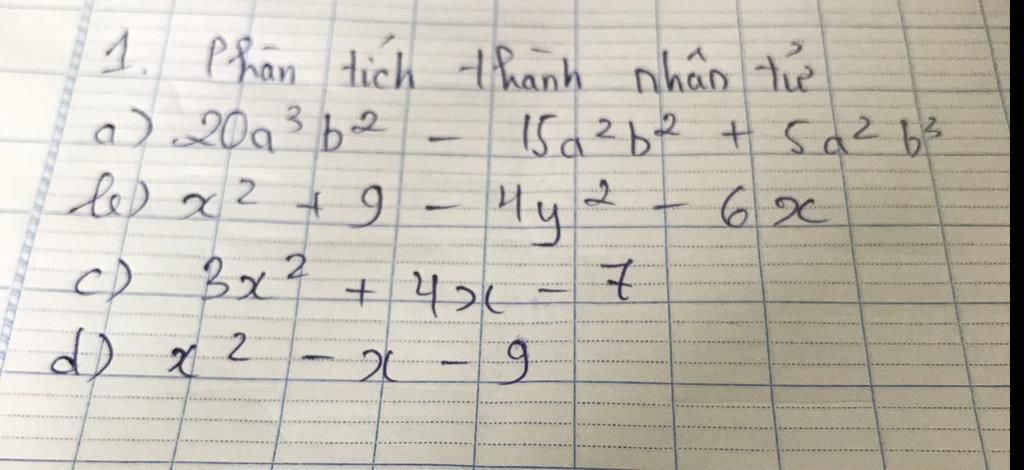 1. Phân tích thành nhân tử
a) 20a³b² - 15a²b² + 5a²b³
b) x² + 9 - 4y² - 6x
c) 3x² + 4x - 7
d) x² - x - 9